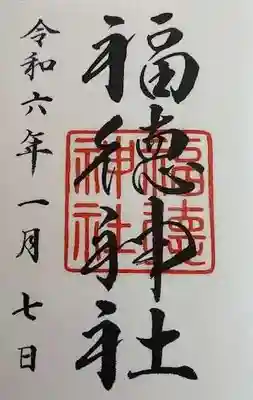 福徳神社
令和六年一月七日
福徳
神社